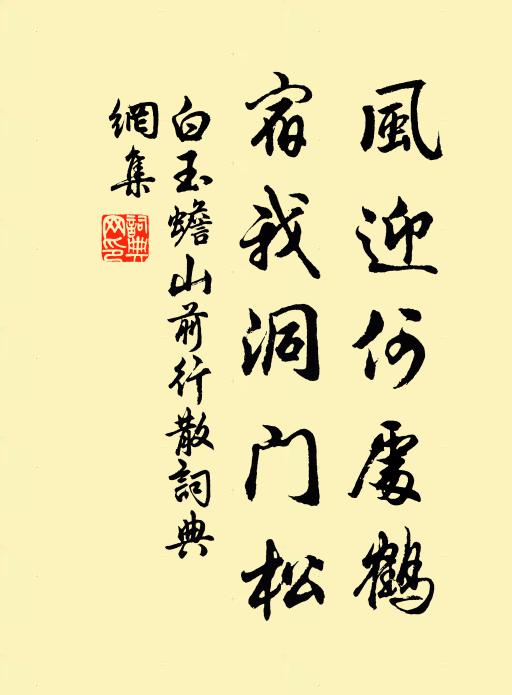 風迎何處鶴
宿我洞门松
白玉蟾山前行散詞典
網集
詞典
网印